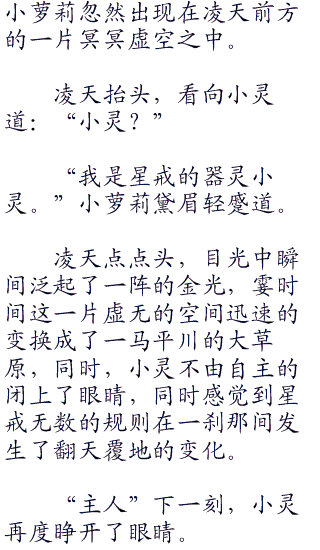 小萝莉忽然出现在凌天前方
的一片冥冥虚空之中。
凌天抬头，看向小灵
道：“小灵？”
“我是星戒的器灵小
灵。”小萝莉黛眉轻蹙道。
凌天点点头，目光中瞬
间泛起了一阵的金光，霎时
间这一片虚无的空间迅速的
变换成了一马平川的大草
原，同时，小灵不由自主的
闭上了眼睛，同时感觉到星
戒无数的规则在一刹那间发
生了翻天覆地的变化。
“主人”下一刻，小灵
再度睁开了眼睛。